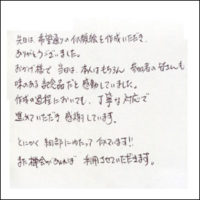 先日は、希望通りの似顔絵を作成いただき
ありがとうございました。
おかげ様で 当日は、本人はもちろん 参加者の皆さんも
味のある記念品だと感動していました。
作成の過程においても、丁寧な対応で
進めていただき 感謝しています。
とにかく 細部にわたって 似ています!!
また機会があれば 利用させていただきます。